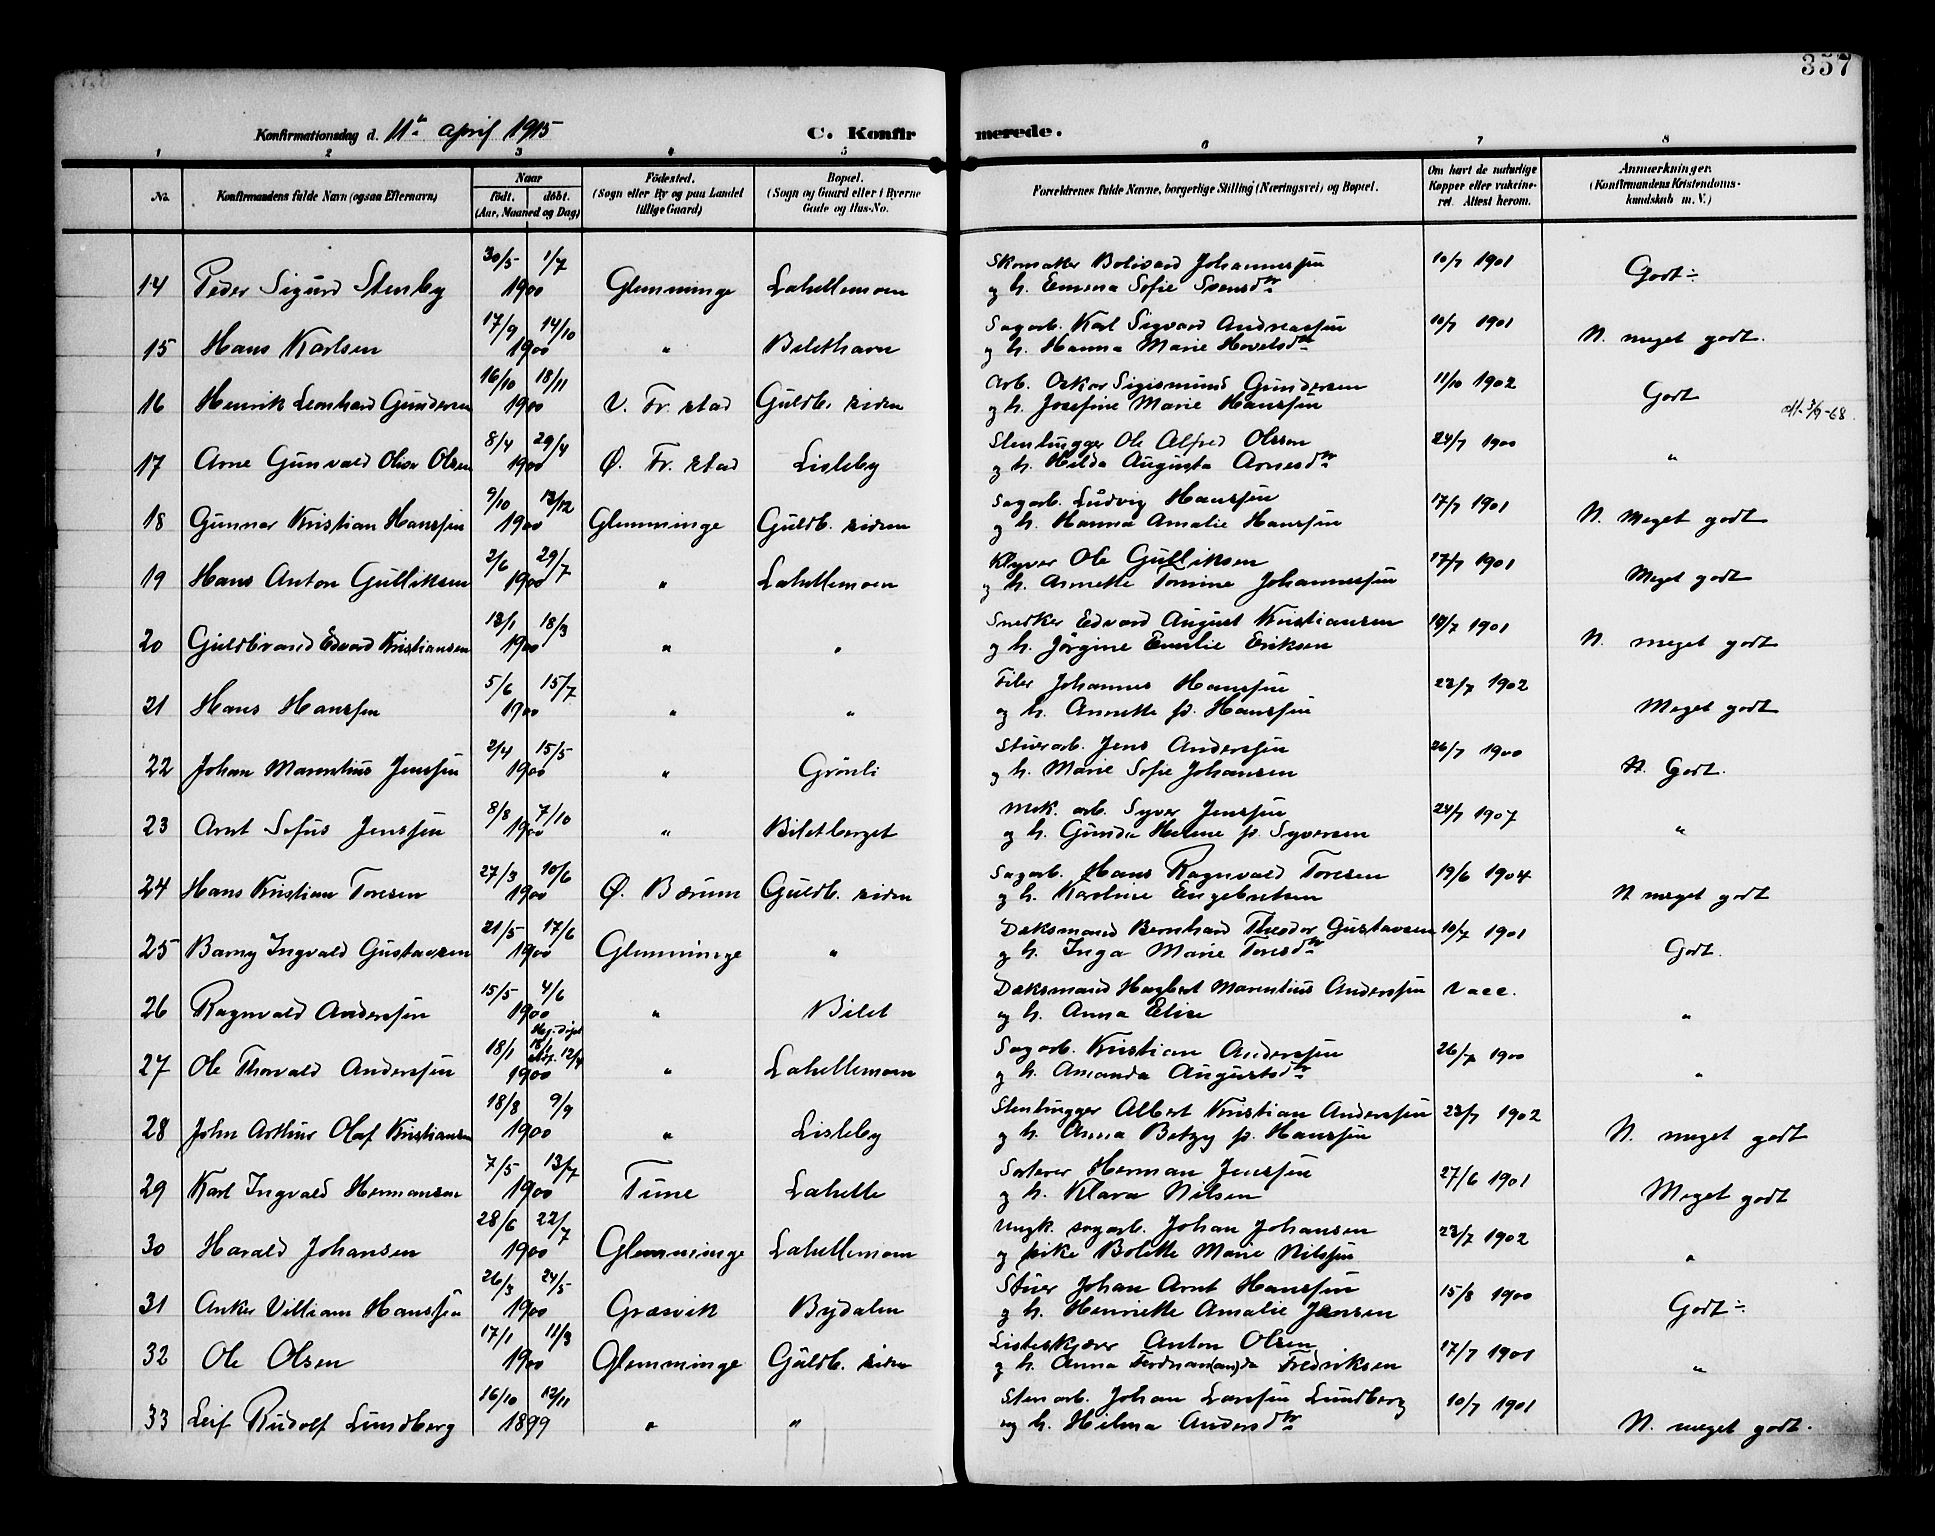 357
Konfirmationsdag d. 11te april 1915 C. Konfirmerede.
1 2 3 4 5 6 7 8
No. Konfirmandens fulde Navn (ogsaa Efternavn) Naar födt. döbt. (Aar, Maaned og Dag) Födested. (Sogn eller By og paa Landet tillige Gaard) Bopæl. (Sogn og Gaard eller i Byerne Gade og Hus-No. Forældrenes fulde Navne, borgerlige Stilling (Næringsvei) og Bopæl. Om havt de naturlige Kopper eller vakcineret. Attest herom. Anmærkninger. (Konfirmandens Kristendomskundskab m. V.)
30/5 1/7 Skomaker Bolivard Johannessen 10/7 1901
14 Peder Sigurd Stenby 1900 Glemminge Lahellemoen og h. Emma Sofie Svensdtr Godt ÷
17/9 14/10 Sagarb. Karl Sigvard Andreassen 10/7 1901
15 Hans Karlsen 1900 " Bilethavn og h. Hanna Marie Hovelsdtr N. meget godt.
16/10 18/11 Arb. Oskar Sigismund Gundersen 11/10 1902
16 Henrik Leonhard Gundersen 1900 V. Fr.stad Guldb. siden og h. Josefine Marie Hanssen Godt
8/4 29/4 Stenhugger Ole Alfred Olsen 24/7 1900
17 Arne Gunvald Olsen 1900 Ø. Fr.stad Lisleby og h. Hilda Augusta Arnesdtr "
9/10 13/12 Sagarb. Ludvig Hanssen 17/7 1901
18 Gunnar Kristian Hanssen 1900 Glemminge Guldb. siden og h. Hanna Amalie Hanssen N. meget godt
2/6 29/7 Klyver Ole Gulliksen 17/7 1901
19 Hans Anton Gulliksen 1900 " Lahellemoen og h. Annette Tomine Johannessen Meget godt
13/1 18/3 Snedker Edvard August Kristiansen 1901
20 Guldbrand Edvard Kristiansen 1900 " " og h. Jörgine Emilie Eriksen N. meget godt
5/6 15/7 Filer Johannes Hanssen 22/7 1902
21 Hans Hanssen 1900 " " og h. Annette f. Hanssen Meget godt
2/4 15/5 Stuerarb. Jens Anderssen 26/7 1900
22 Johan Marentius Jenssen 1900 " Grönli og h. Marie Sofie Johansen N. Godt.
8/8 7/10 Mek. arb. Syver Jenssen 24/7 1907
23 Arnt Sofus Jenssen 1900 " Biletberget og h. Gunda Helene f. Syversen "
27/3 10/6 Sagarb. Hans Ragnvald Toresen 19/6 1904
24 Hans Kristian Toresen 1900 Ø. Bærum Guldb. siden og h. Karoline Engebretsen N meget godt
21/5 17/6 Dæksmand Bernhard Theodor Gustavsen 10/7 1901
25 Barny Ingvald Gustavsen 1900 Glemminge " og h. Inga Marie Toresdtr Godt.
15/5 4/6 Dæksmand Hagbert Marentius Anderssen Vacc.
26 Ragnvald Anderssen 1900 " Bilet og h. Anna Elise "
18/1 12/4 Sagarb. Kristian Anderssen 26/7 1900
27 Ole Thorvald Anderssen 1900 " Lahellemoen og h. Amanda Augustsdtr "
18/8 9/9 Stenhugger Albert Kristian Anderssen 23/7 1902
28 John Arthur Olaf Kristiansen 1900 " Lisleby og h. Anna Betzy f. Hanssen N. meget godt
7/5 13/7 Sorterer Herman Jenssen 27/6 1901
29 Karl Ingvald Hermansen 1900 Tune Lahelle og h. Klara Nilsen Meget godt
28/6 22/7 Ungk. sagarb. Johan Johansen 23/7 1902
30 Harald Johansen 1900 Glemminge Lahellemoen og pike Bolette Marie Nilssen "
26/3 24/5 Stuer Johan Arnt Hanssen 15/8 1900
31 Anker Villiam Hanssen 1900 Græsvik Bydalen og h. Henriette Amalie Jensen Godt ÷
17/1 11/3 Listeskjærer Anton Olsen 17/7 1901
32 Ole Olsen 1900 Glemminge Guldb. siden og h. Anna Ferdinan(an)da Fredriksen "
16/10 12/11 Stenarb. Johan Larssen Lundberg 10/7 1901
33 Leif Rudolf Lundberg 1899 " " og h. Hilma Andersdtr N. meget godt.